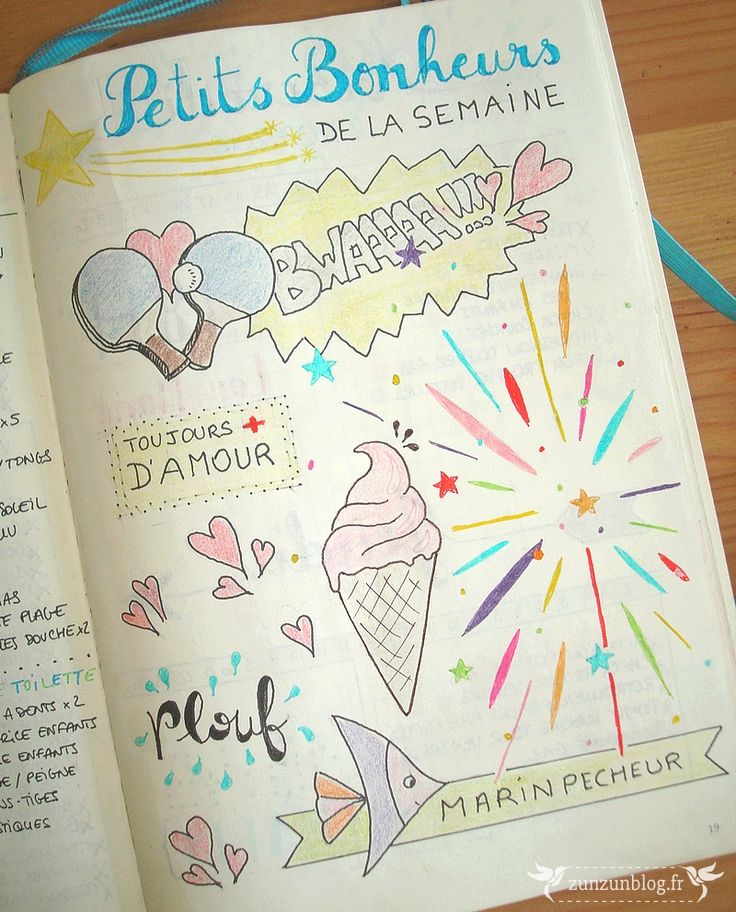 Petits Bonheurs
DE LA SEMAINE
BWAAAAA!!!
TOUJOURS +
D'AMOUR
Plouf
MARIN PECHEUR
19
x5
TONGS
SOLEIL
PLAGE
BOUCHE x2
TOILETTE
A DENTS x2
ENFANTS
ENFANTS
/ PEIGNE
-TIGES
zunzunblog.fr